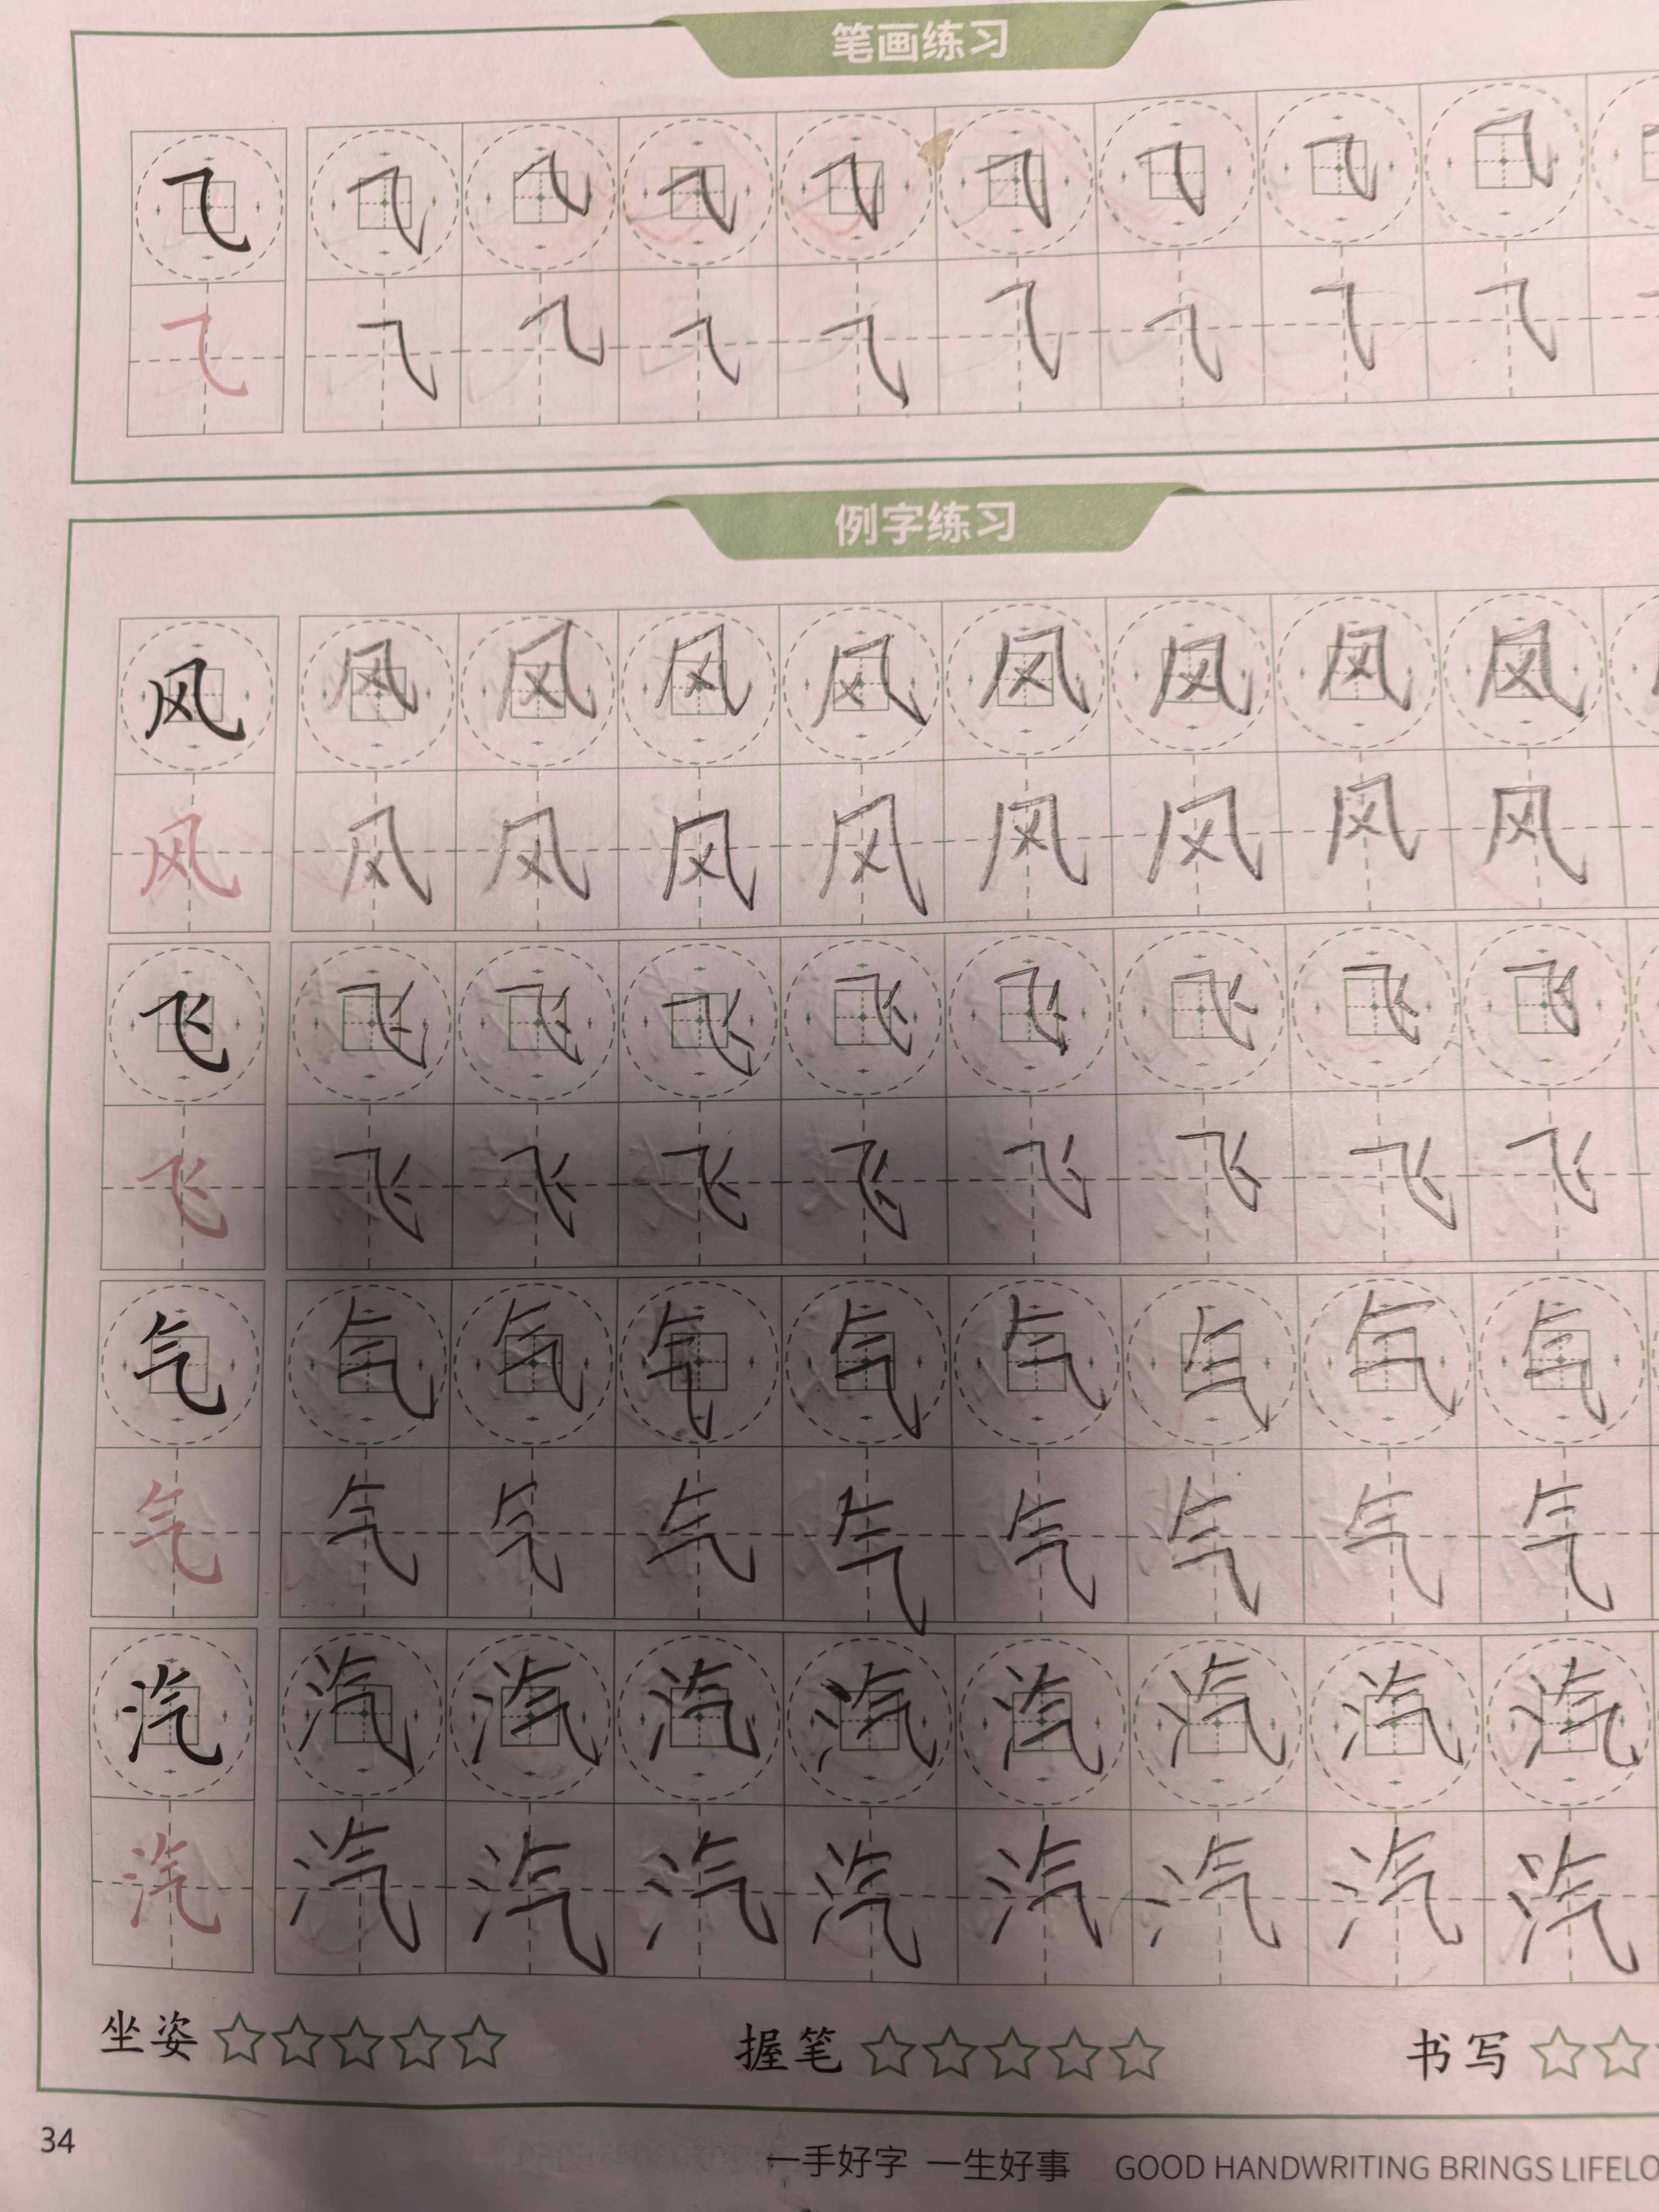 笔画练习
⺄ ⺄ ⺄ ⺄ ⺄ ⺄ ⺄ ⺄ ⺄
⺄ ⺄ ⺄ ⺄ ⺄ ⺄ ⺄ ⺄ ⺄
例字练习
风 风 风 风 风 风 风 风 风
风 风 风 风 风 风 风 风 风
飞 飞 飞 飞 飞 飞 飞 飞 飞
飞 飞 飞 飞 飞 飞 飞 飞 飞
气 气 气 气 气 气 气 气 气
气 气 气 气 气 气 气 气 气
汽 汽 汽 汽 汽 汽 汽 汽 汽
汽 汽 汽 汽 汽 汽 汽 汽 汽
坐姿 ☆☆☆☆☆ 握笔 ☆☆☆☆☆ 书写 ☆☆
34 一手好字 一生好事 GOOD HANDWRITING BRINGS LIFELO